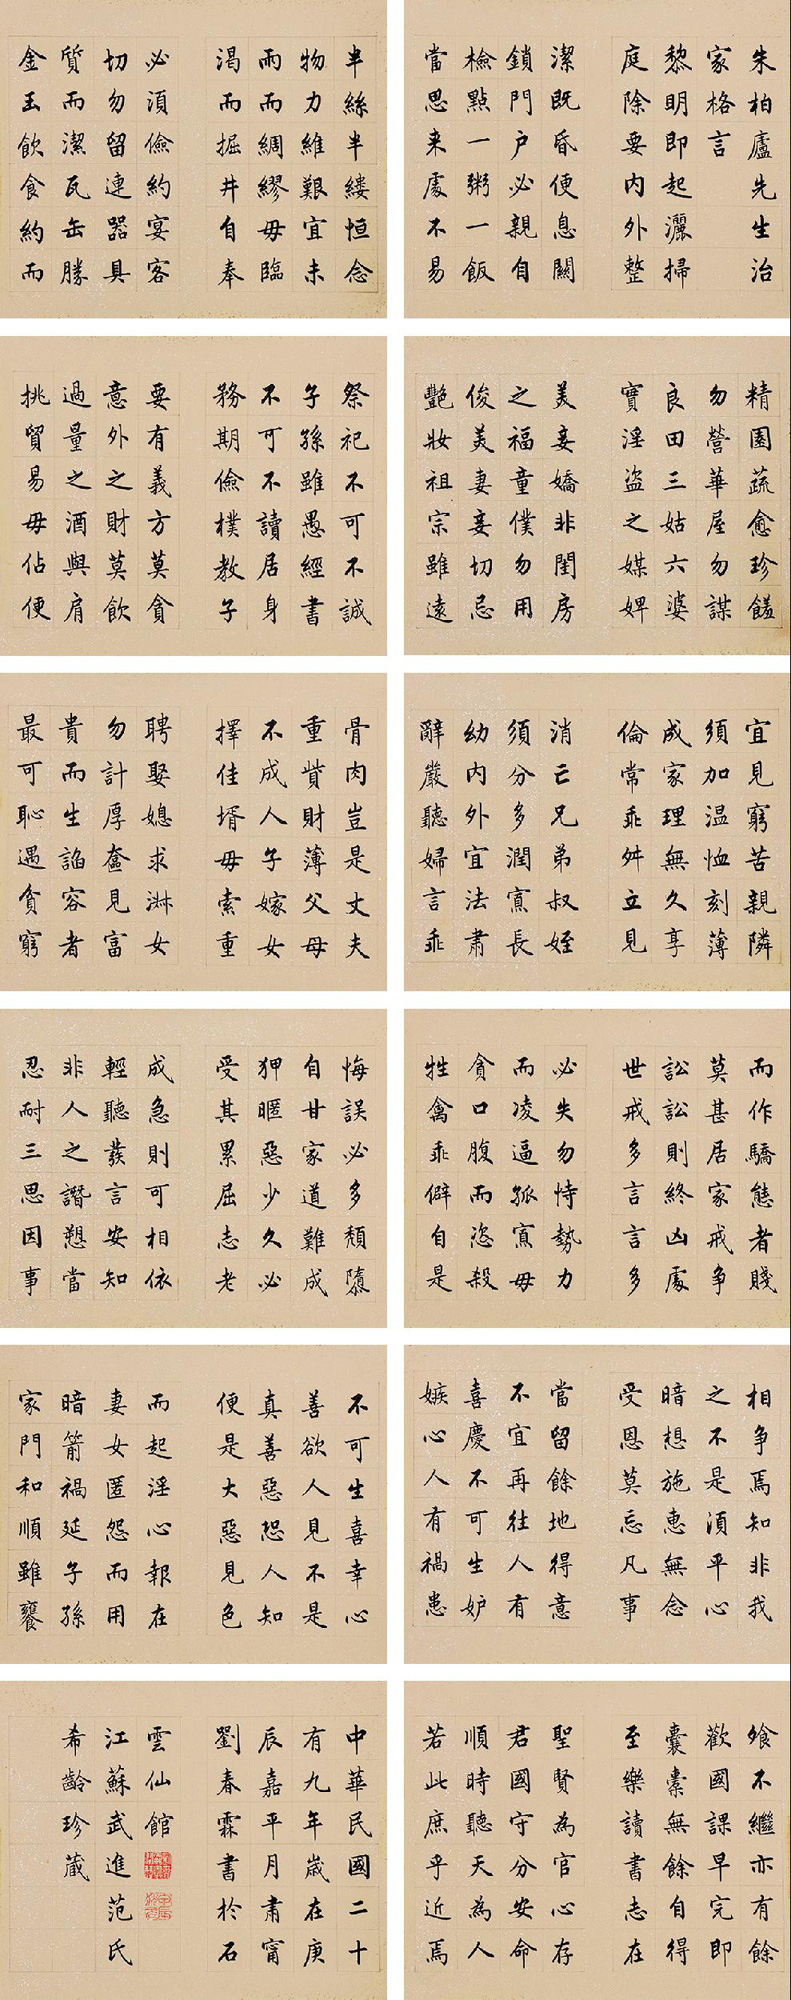 朱柏廬先生治
家格言
黎明即起灑掃
庭除要内外整
潔既昏便息關
鎖門户必親自
檢點一粥一飯
當思来處不易
半絲半縷恒念
物力維艱宜未
雨而綢繆毋臨
渴而掘井自奉
必須儉約宴客
切勿留連器具
質而潔瓦缶勝
金玉飲食約而
精園蔬愈珍饈
勿營華屋勿謀
良田三姑六婆
實淫盜之媒婢
美妾嬌非閨房
之福童僕勿用
俊美妻妾切忌
艷妝祖宗雖遠
祭祀不可不誠
子孫雖愚經書
不可不讀居身
務期儉樸教子
要有義方莫貪
意外之財莫飲
過量之酒與肩
挑貿易毋佔便
宜見窮苦親隣
須加温恤刻薄
成家理無久享
倫常乖舛立見
消亡兄弟叔姪
須分多潤寡長
幼内外宜法肅
辭嚴聽婦言乖
骨肉豈是丈夫
重貲財薄父母
不成人子嫁女
擇佳壻毋索重
聘娶媳求淑女
勿計厚奩見富
貴而生諂容者
最可恥遇貧窮
而作驕態者賤
莫甚居家戒争
訟訟則終凶處
世戒多言言多
必失勿恃勢力
而凌逼孤寡毋
貪口腹而恣殺
牲禽乖僻自是
悔誤必多頽隳
自甘家道難成
狎暱惡少久必
受其累屈志老
成急則可相依
輕聽發言安知
非人之譖愬當
忍耐三思因事
相争焉知非我
之不是須平心
暗想施惠無念
受恩莫忘凡事
當留餘地得意
不宜再往人有
喜慶不可生妒
嫉心人有禍患
不可生喜幸心
善欲人見不是
真善惡恐人知
便是大惡見色
而起淫心報在
妻女匿怨而用
暗箭禍延子孫
家門和順雖饔
飧不繼亦有餘
歡國課早完即
囊橐無餘自得
至樂讀書志在
聖賢為官心存
君國守分安命
順時聽天為人
若此庶乎近焉
中華民國二十
有九年歲在庚
辰嘉平月肅甯
劉春霖書於石
雲仙館
江蘇武進范氏
希齡珍藏